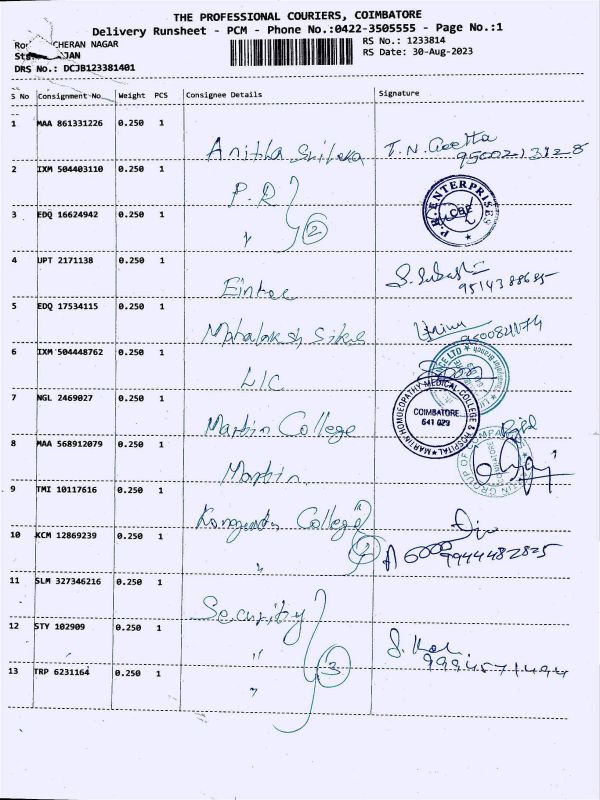 THE PROFESSIONAL COURIERS, COIMBATORE
Delivery Runsheet - PCM - Phone No.:0422-3505555 - Page No.:1
CHERAN NAGAR
RS No.: 1233814
RS Date: 30-Aug-2023
DRS No.: DCJB123381401
S No Consignment No Weight PCS Consignee Details Signature
1 MAA 861331226 0.250 1 T.N. Geetha
2 IXM 504403110 0.250 1 P.R
P.R. ENTERPRISES
CBE
3 EDQ 16624942 0.250 1 " 2
4 UPT 2171138 0.250 1
5 EDQ 17534115 0.250 1
6 IXM 504448762 0.250 1 LIC
7 NGL 2469027 0.250 1 Martin College
MARTIN HOMOEOPATHY MEDICAL COLLEGE & HOSPITAL
COIMBATORE
641 029
8 MAA 568912079 0.250 1 Martin
9 TMI 10117616 0.250 1 Kongunadu College
10 KCM 12869239 0.250 1 " 2 9944482825
11 SLM 327346216 0.250 1 Security
12 STY 102909 0.250 1 "
13 TRP 6231164 0.250 1 " 3